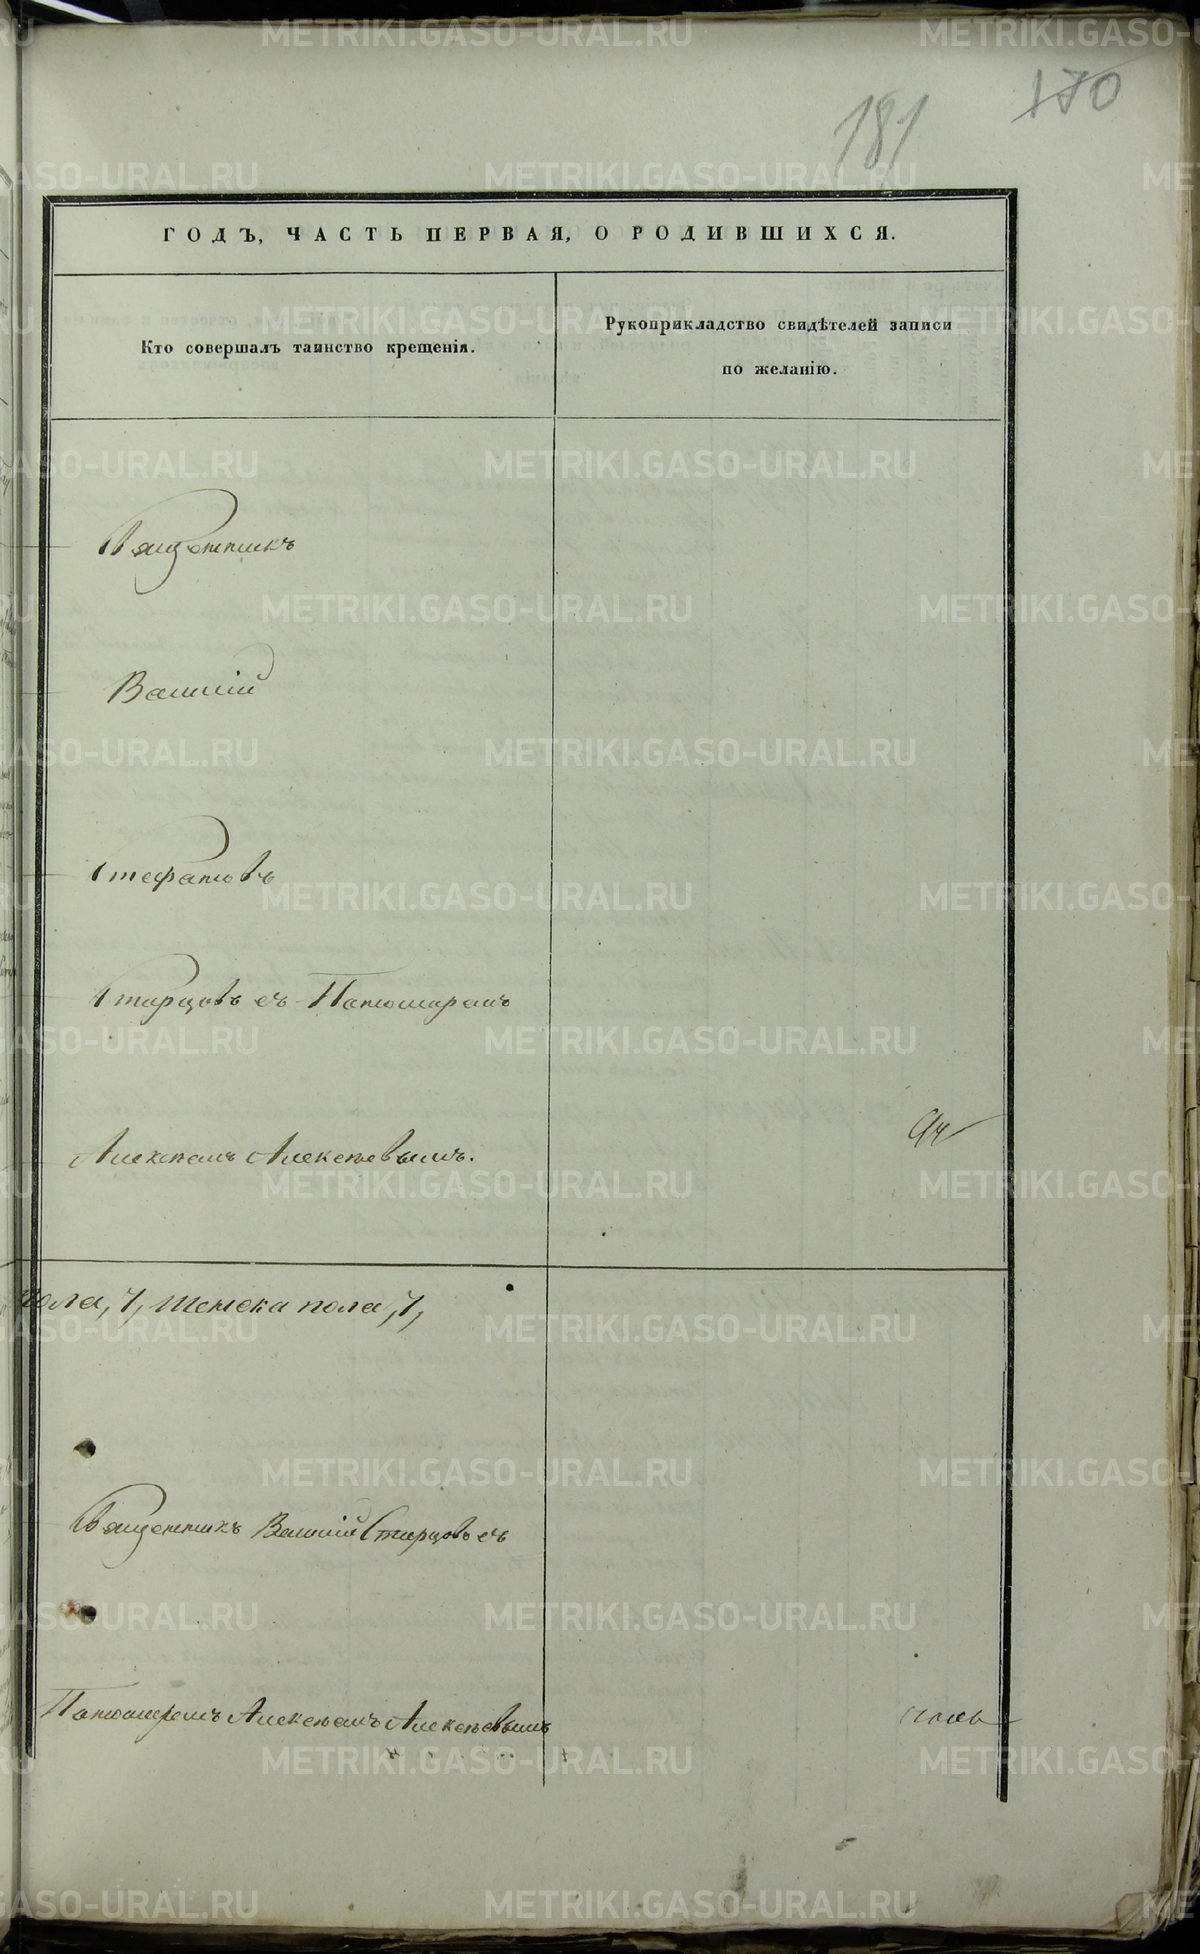 170
181
ГОДЪ, ЧАСТЬ ПЕРВАЯ, О РОДИВШИХСЯ.
Кто совершалъ таинство крещенія.
Рукоприкладство свидѣтелей записи
по желанію.
Священникъ
Василій
Стефановъ
Старцовъ съ Паномаремъ
Алексѣемъ Алексѣевымъ.
пола, 7, женска пола, 7,
Священникъ Василій Старцовъ съ
Паномаремъ Алексѣемъ Алексѣевымъ
METRIKI.GASO-URAL.RU